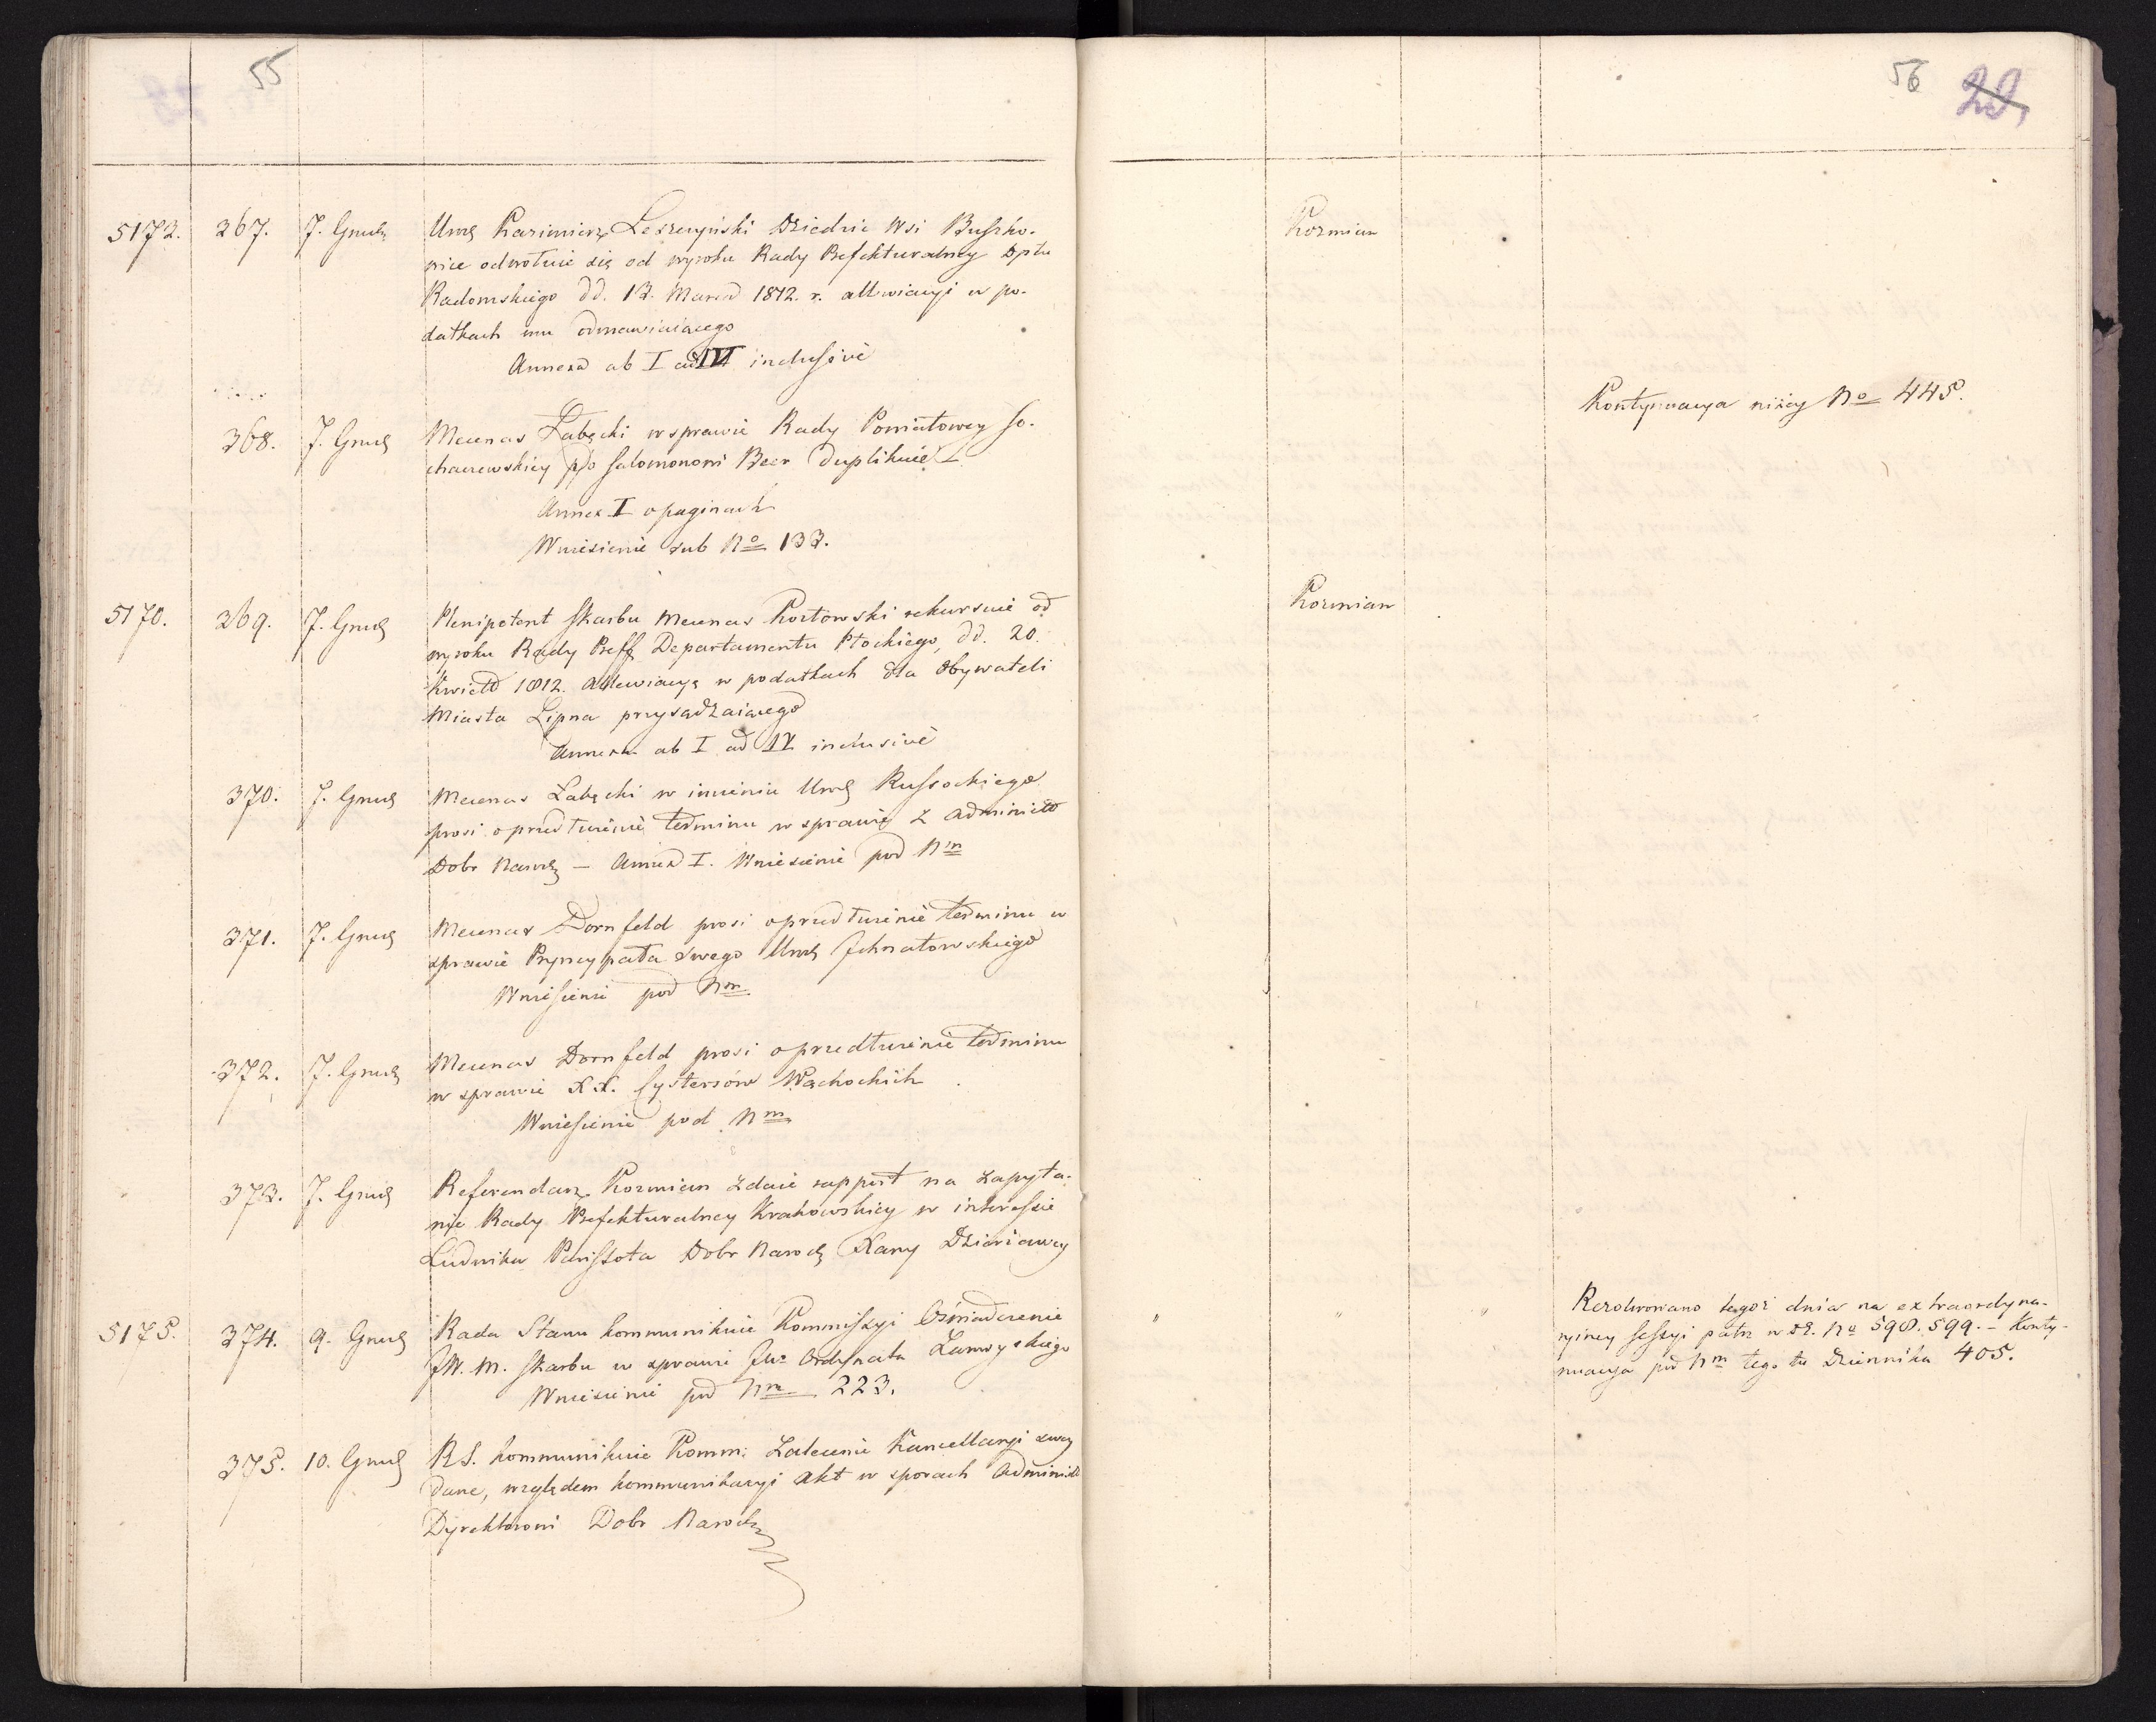 55
5172. 367. 7. Grud Urod Kazimierz Leszczyński Dziedzic Wsi Buszko-
wice odwołuie się od wyroku Rady Prefekturalney Dptu
Radomskiego dd. 13. Marca 1812. r. allewiacyi w po-
datkach mu odmawiaiącego
Annexa ab I ad IV inclusive
368. 7. Grud Mecenas Łabęcki w sprawie Rady Powiatowey So-
chaczewskiey p/o Salomonowi Beer duplikuie
Annex I o paginach
Wniesienie sub No 133.
5170. 369. 7. Grud Plenipotent Skarbu Mecenas Kozłowski rekursuie od
wyroku Rady Preff Departamentu Płockiego, dd. 20.
Kwiet 1812. Allewiacyą w podatkach dla Obywateli
Miasta Lipna przysądzaiącego
Annexa ab I ad IV inclusive
370. 7. Grud Mecenas Łabęcki w imieniu Urod Russockiego
prosi o przedłużenie terminu w sprawie z Administ
Dobr Narod — Annex I. Wniesienie pod Nm
371. 7. Grud Mecenas Dornfeld prosi o przedłużenie terminu w
sprawie Pryncypała swego Urod Jchnatowskiego
Wniesienie pod Nm
372. 7. Grud Mecenas Dornfeld prosi o przedłużenie terminu
w sprawie XX. Cystersów Wąchockich
Wniesienie pod Nm
373. 7. Grud Referendarz Kozmian zdaie rapport na zapyta-
nie Rady Prefekturalney Krakowskiey w interessie
Ludwika Parissota Dobr Narod Dzierżawcy
5175. 374. 9. Grud Rada Stanu kommunikuie Kommissyi Oświadczenie
JW. M. Skarbu w sprawie JW. Ordynata Zamoyskiego
Wniesienie pod Nm 223.
375. 10. Grud R.S. kommunikuie Komm: Zalecenie Kancellaryi swey
dane, względem kommunikacyi Akt w sporach Administ
Dyrektorowi Dobr Narod
56 29,
Kozmian
Kontynuacya niżey No 445.
Kozmian
" " " Rezolwowano tegoż dnia na extraordyna-
ryiney Sessyi patrz w No 598. 599. – Konty-
nuacya pod Nm tego tu Dziennika 405.